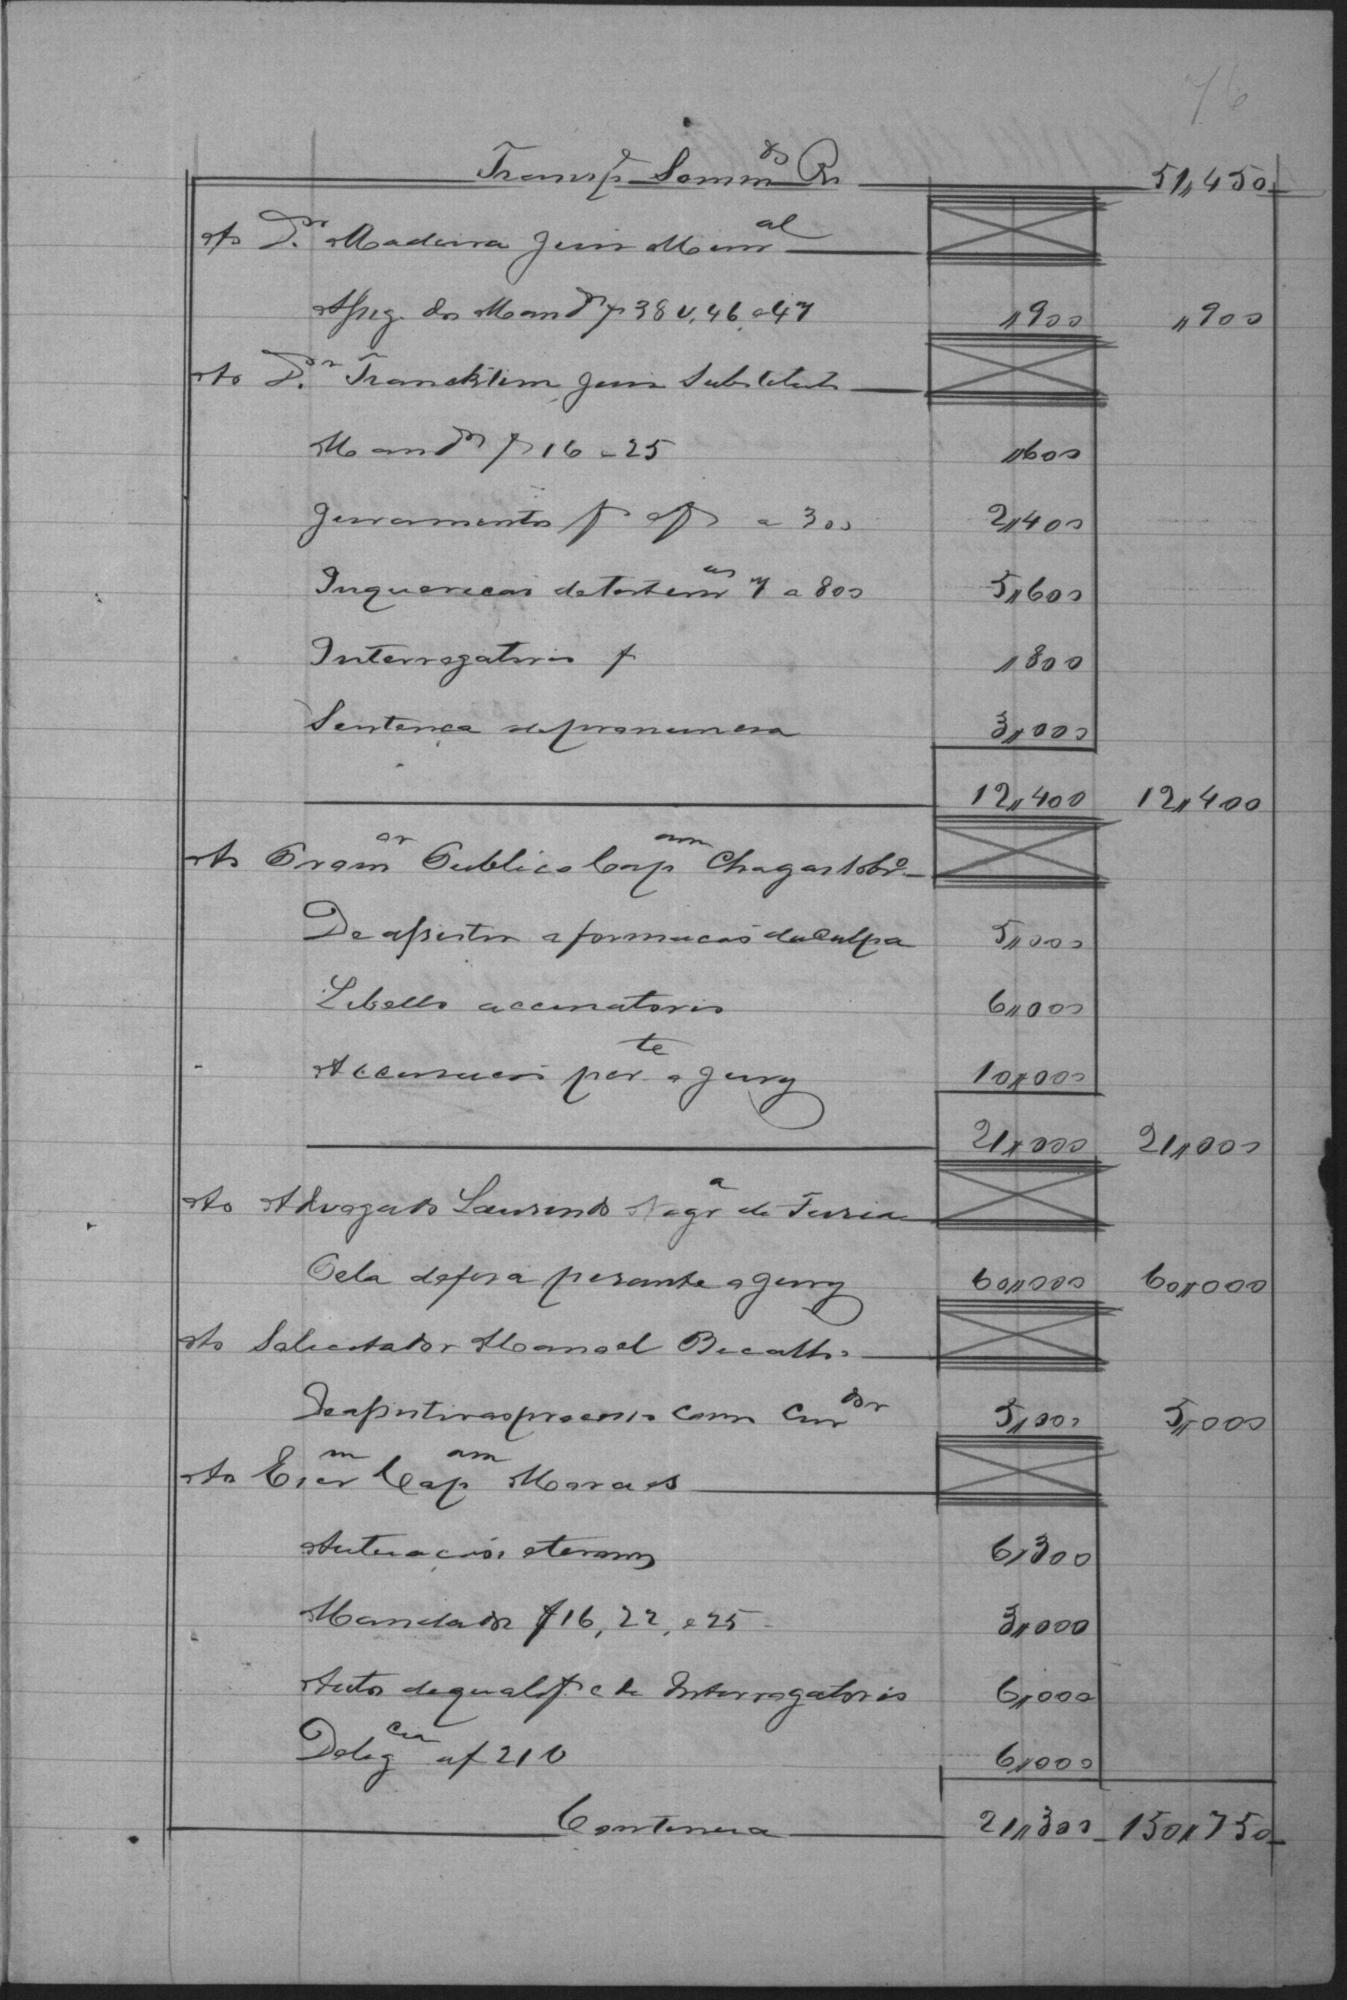 76
Transp.e Somm.do Rs 51,,450
Ao D.or Madeira Juiz Mun.al
Assig. dos Mand.os f 38 v, 46, e 47 ,,900 ,,900
Ao D.or Francklim Juiz Substituto
Mand.os f 16 e 25 ,,600
Juramentos f a f a 300 2,,400
Inquericão de testem.as 7 a 800 5,,600
Interrogatorio f ,,800
Sentença de pronuncia 3,,000
12,,400 12,,400
Ao Prom.or Publico Cap.am Chagas Sobr.o
De assistir a formacão da Culpa 5,,000
Libello accusatorio 6,,000
Accusacão per.te o Jury 10,,000
21,,000 21,,000
Ao Advogado Laurindo de Faria
Pela defesa perante o Jury 60,,000 60,,000
Ao Solicitador Manoel Bicalho
De assistir ao processo como Cur.dor 5,,000 5,,000
Ao Escr.m Cap.am Moraes
Autuacão, e termos 6,,300
Mandados f 16, 22, e 25 3,,000
Autos de qualif e de Interrogatorio 6,,000
Delig.cia a f 21 v 6,,000
Continua 21,,300 150,,750